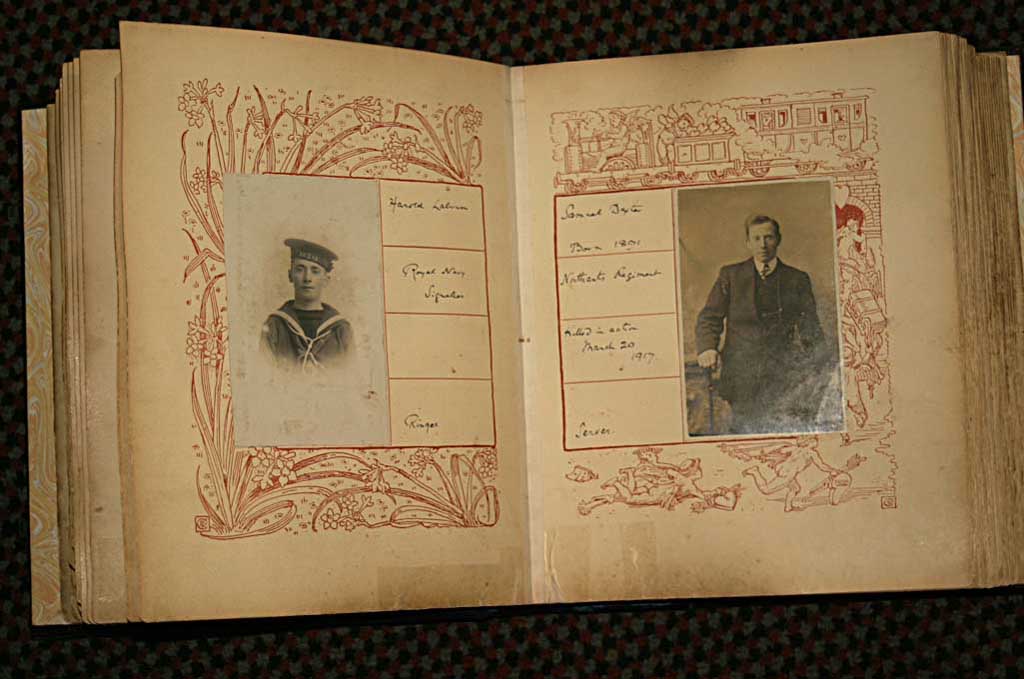 Harold
Royal Navy
Signaller
Ringer
Samuel
Born 1891
Northants Regiment
Killed in action
March 20
1917.
Server.